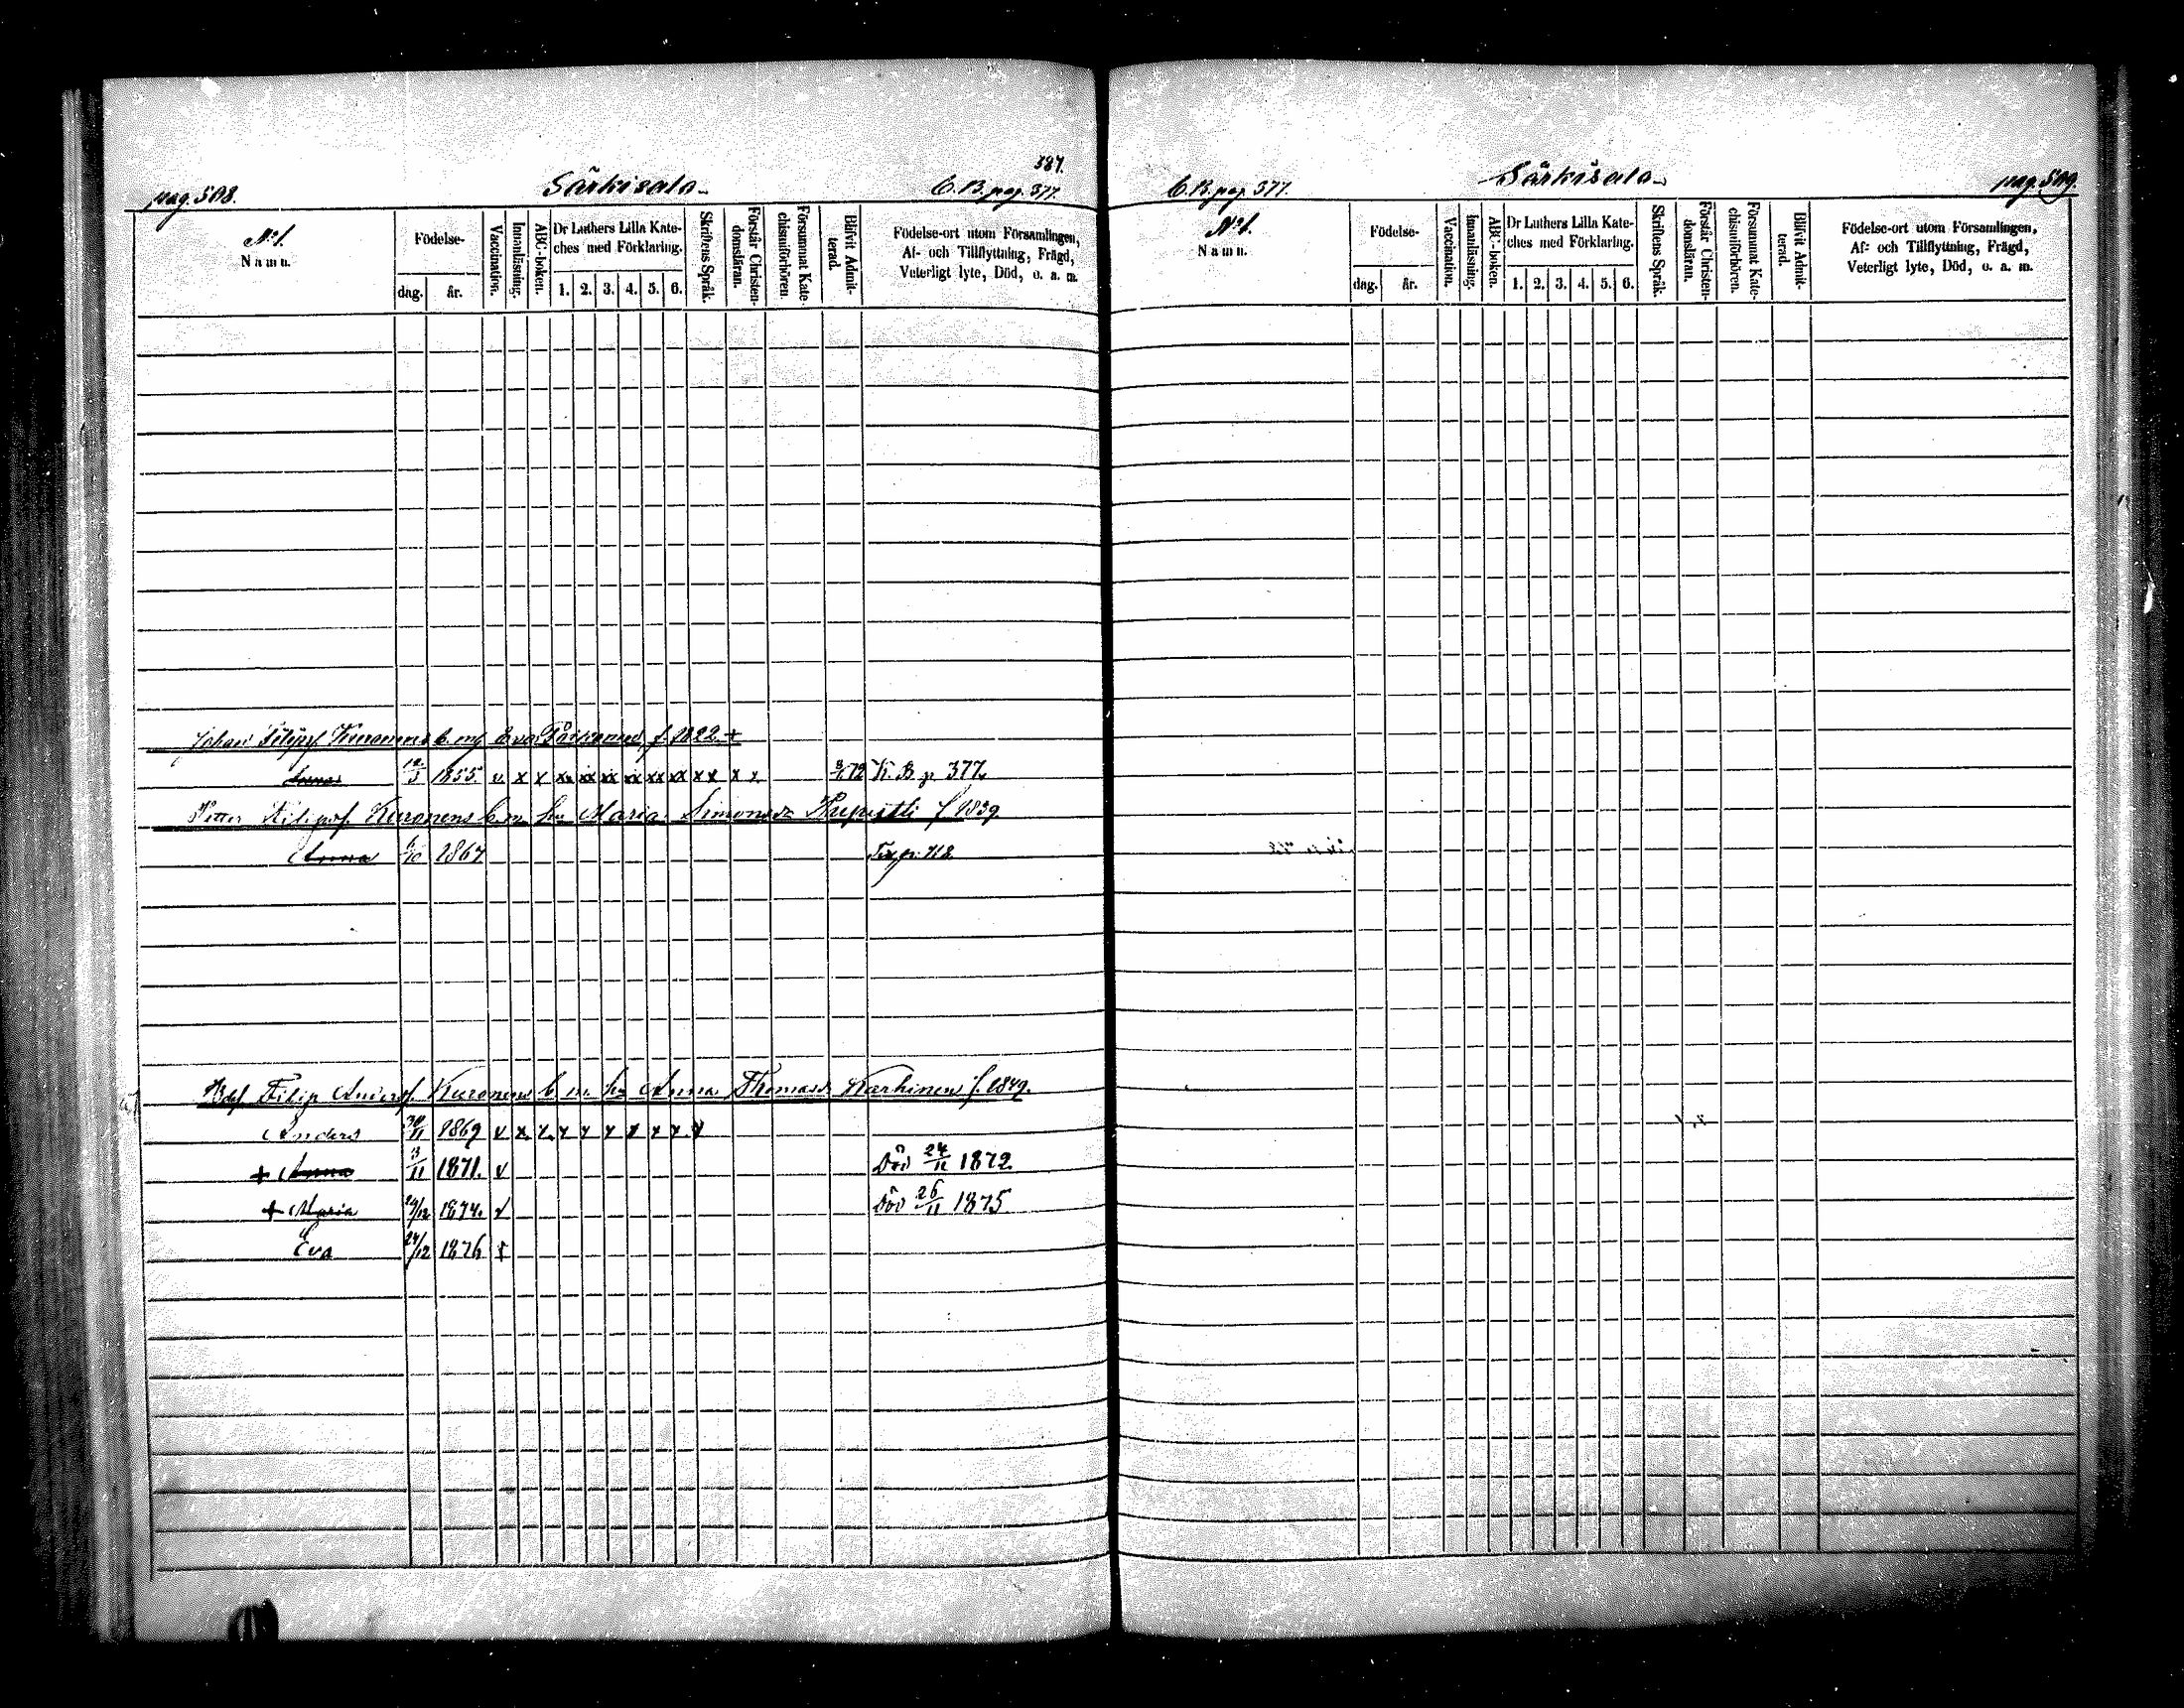 387.
pag. 508. Särkisalo C.B. pag. 377.
N:o 1.
Namn.
Födelse-
dag. år.
Vaccination.
Innanläsning.
ABC-boken.
Dr Luthers Lilla Kate-
ches med Förklaring.
1. 2. 3. 4. 5. 6.
Skriftens Språk.
Förstår Christen-
domsläran.
Försummat Kate-
chismiförhören.
Blifvit Admit-
terad.
Födelse-ort utom Församlingen,
Af- och Tillflyttning, Frägd,
Veterligt lyte, Död, o. a. m.
Johan Filipsf. Kuronens b. m. Eva f. 1822. +
Anna 1855. v x x xx xx xx xx xx xx x x x x 72 K. B. p. 377.
Petter Filipsf. Kuronens b. m. h. Maria Simonsdr f. 1839.
Anna 6/10 1867 p. 712
Filip Andersf. Kuronens b. m. h. Anna Thomasdr Karhinen f. 1849.
Anders 30/11 1869 v x x x x x x x x x
+ Anna 3/11 1871. v Död 24/11 1872
+ Maria 24/12 1874. v Död 26/11 1875
Eva 24/12 1876
C.B. pag. 377. Särkisalo pag. 509.
N:o 1.
Namn.
Födelse-
dag. år.
Vaccination.
Innanläsning.
ABC-boken.
Dr Luthers Lilla Kate-
ches med Förklaring.
1. 2. 3. 4. 5. 6.
Skriftens Språk.
Förstår Christen-
domsläran.
Försummat Kate-
chismiförhören.
Blifvit Admit-
terad.
Födelse-ort utom Församlingen,
Af- och Tillflyttning, Frägd,
Veterligt lyte, Död, o. a. m.